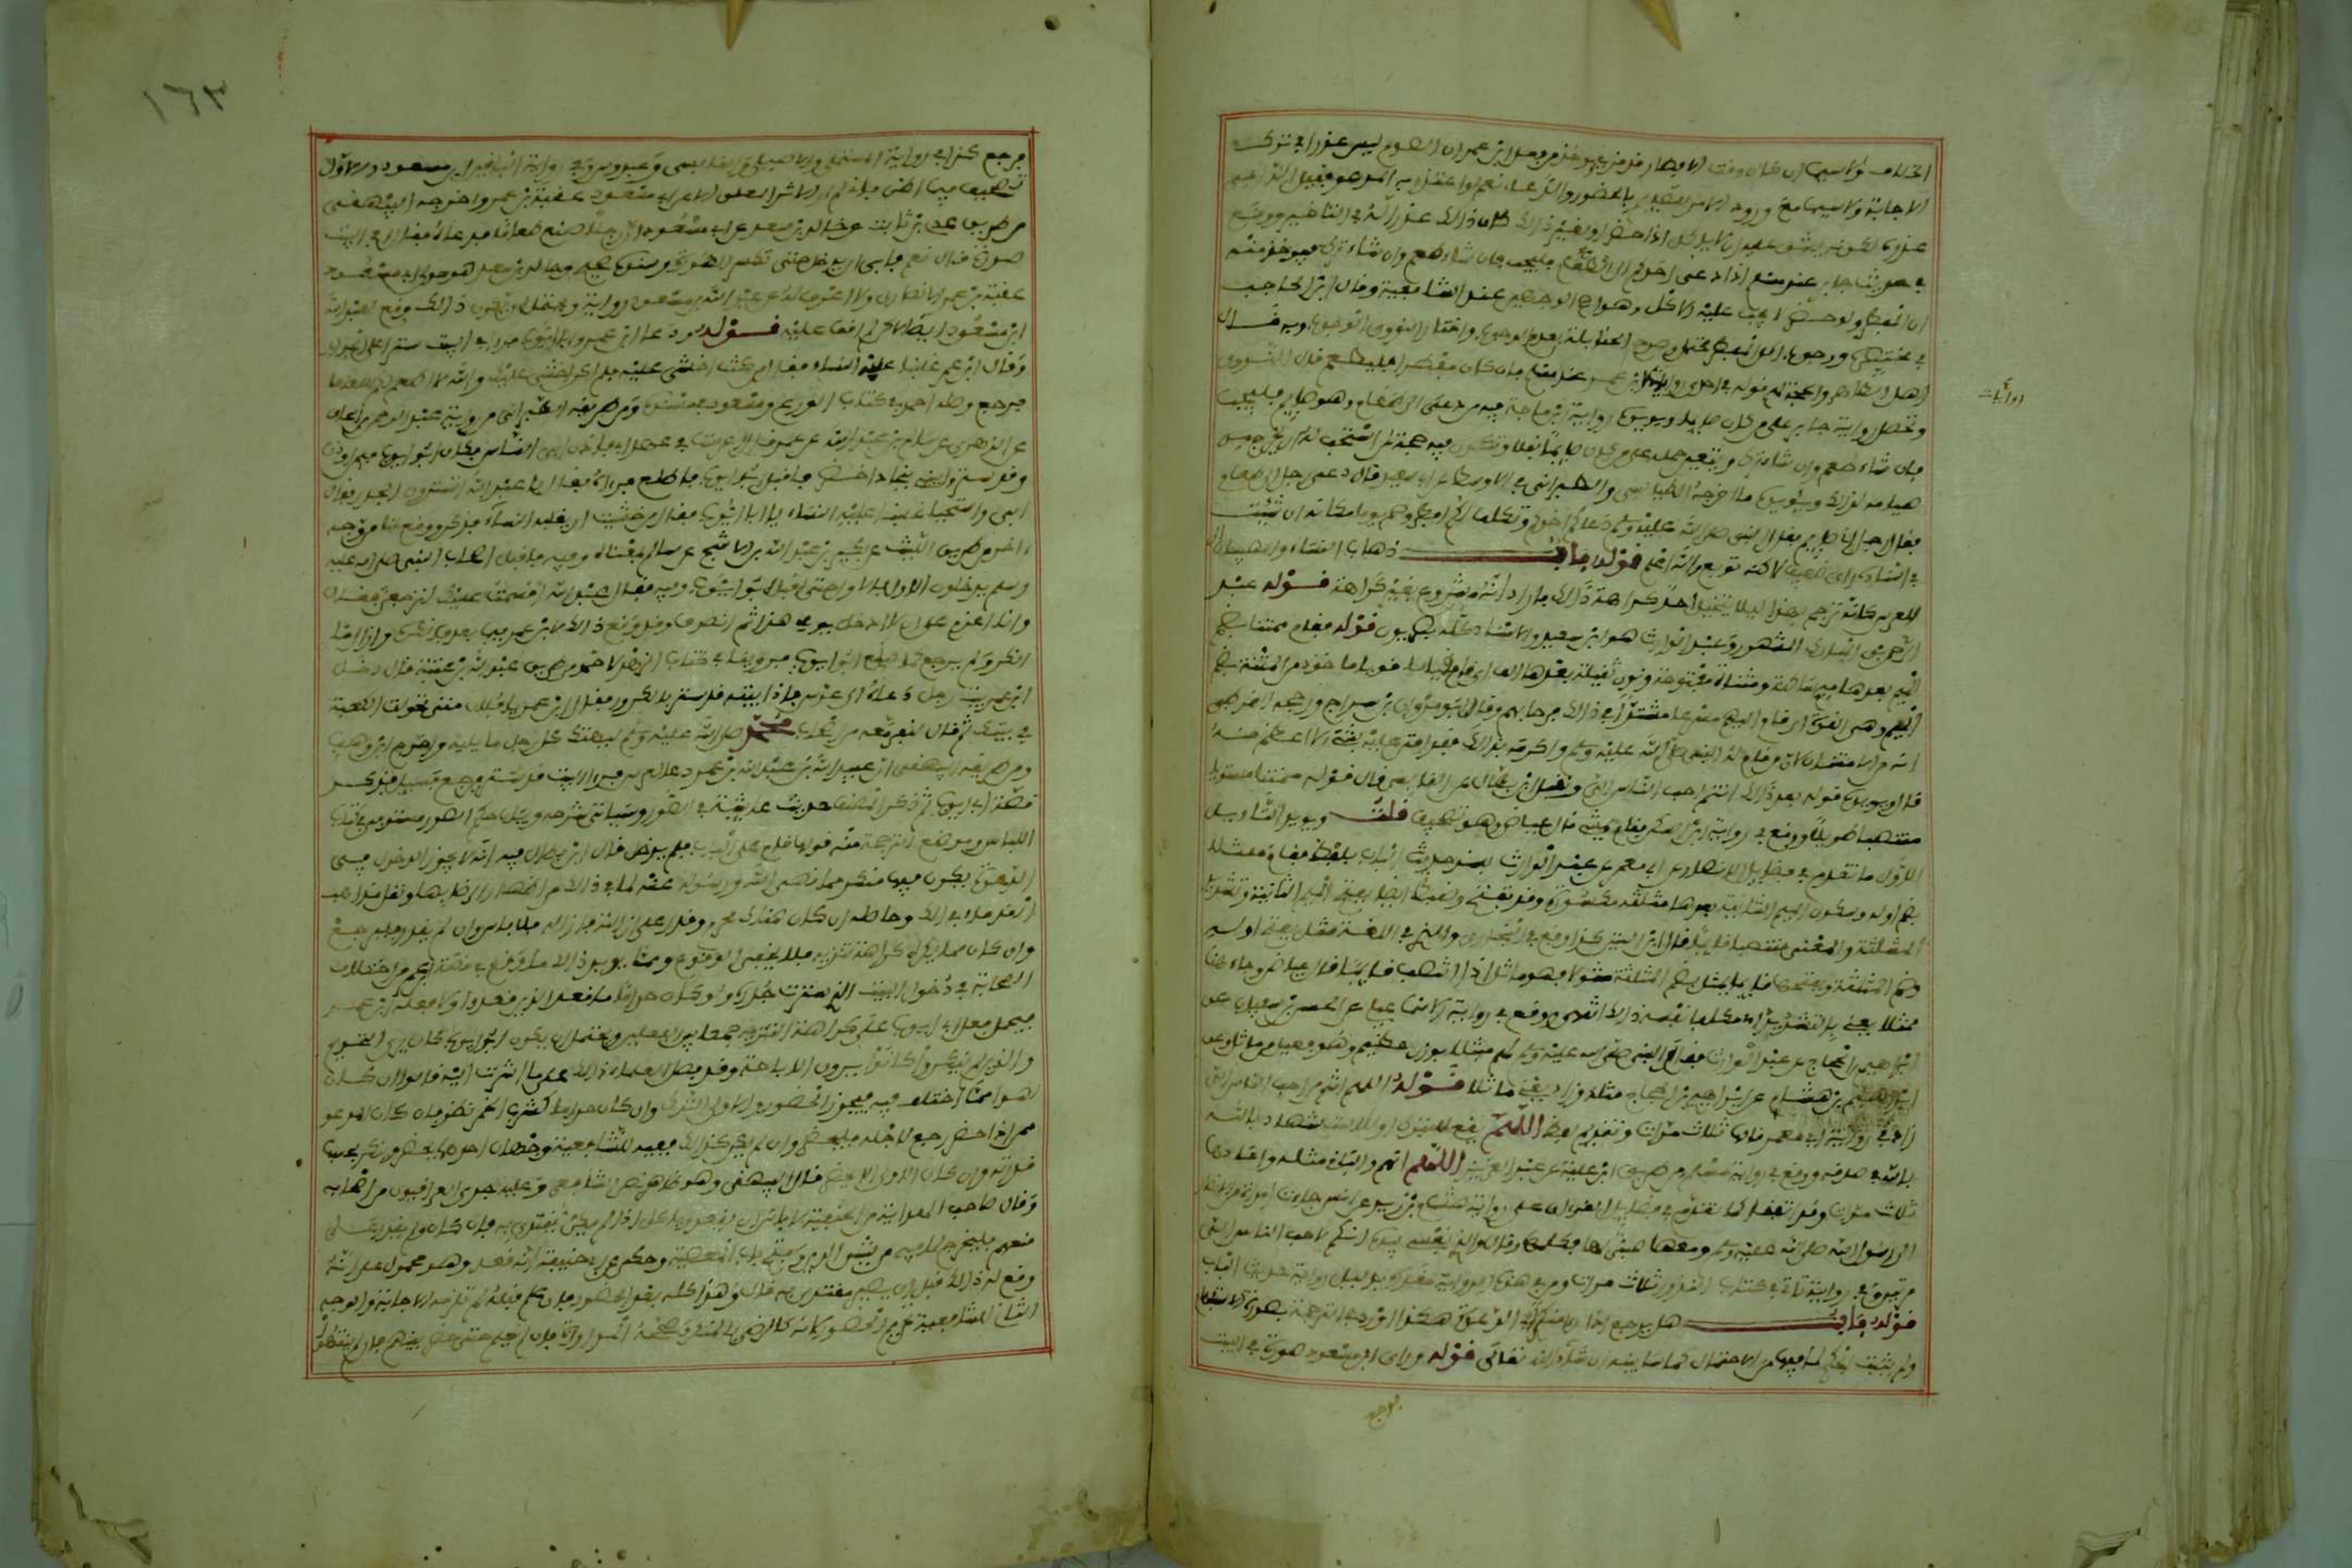 الخلاف ولا سيما ان كان وقت الافطار قد قرب ويؤخذ من فعل ابن عمر ان الصوم ليس عذرا في ترك
الاجابة ولا سيما مع ورود الامر للصائم بالحضور والدعاء نعم لو اعتذر به المدعو فقبل الداعي
عذره لكونه يشق عليه ان لا ياكل اذا حضر او لغير ذلك كان ذلك عذرا له في التاخير ووقع
في حديث جابر عند مسلم اذا دعي احدكم الى الطعام فليجب فان شاء طعم وان شاء ترك فيوخذ منه
ان المفطر ولو حضر لا يجب عليه الاكل وهو اصح الوجهين عند الشافعية وقال ابن الحاجب
في مختصره ووجوب اكل المفطر محتمل وصرح الحنابلة بعدم الوجوب واختار النووي الوجوب وبه قال
اهل الظاهر والحجة لهم قوله في احدى روايات ابن عمر عند مسلم فان كان مفطرا فليطعم قال النووي
وتحمل رواية جابر على من كان صايما ويويده رواية ابن ماجه فيه من دعي الى طعام وهو صايم فليجب
فان شاء طعم وان شاء ترك ويتعين حمله على من كان صايما نفلا وتكون فيه حجة لمن استحب له ان يخرج من
صيامه لذلك ويويده ما اخرجه الطيالسي والطبراني في الاوسط عن ابي سعيد قال دعى رجل الى طعام
فقال رجل اني صايم فقال النبي صلى الله عليه وسلم دعاكم اخوكم وتكلف لكم افطر وصم يوما مكانه ان شئت
في اسناده راو ضعيف لكنه توبع والله اعلم قوله باب ذهاب النساء والصبيان الى
العرس كانه ترجم بهذا ليلا يتخيل احد كراهة ذلك فاراد انه مشروع بغير كراهة قوله عبد
الرحمن بن المبارك المشهور وعبد الوارث هو ابن سعيد والاسناد كله بصريون قوله فقام ممتنا بضم
الميم بعدها ميم ساكنة ومثناة مفتوحة ونون ثقيلة بعدها الف اي قام قياما قويا ماخوذ من المنة بضم
الميم وهي القوة اي قام اليهم مسرعا مشتدا في ذلك فرحا بهم وقال ابو مروان بن سراج ورجحه القرطبي
انه من الامتنان لان من قام له النبي صلى الله عليه وسلم واكرمه بذلك فقد امتن عليه بشيء لا اعظم منه
قال ويويده قوله بعد ذلك انتم احب الناس الي ونقل ابن بطال عن القابسي قال قوله ممتنا يعني
منتصبا طويلا ووقع في رواية ابن السكن فقام يمشي قال عياض وهو تصحيف قلت ويويد التاويل
الاول ما تقدم في فضايل الانصار عن ابي معمر عن عبد الوارث بسند حديث الباب بلفظ فقام ممثلا
بضم اوله وسكون الميم الثانية بعدها مثلثة مكسورة وقد تفتح وضبط ايضا بفتح الميم الثانية وتشديد
المثلثة والمعنى منتصبا قايما قال ابن التين كذا وقع في البخاري والذي في اللغة مثل بفتح اوله
وضم المثلثة وبفتحها قايما يمثل بضم المثلثة مثولا فهو ماثل اذا انتصب قايما قال عياض وجاء هنا
ممثلا يعني بالتشديد اي مكلفا نفسه ذلك انتهى ووقع في رواية الاسماعيلي عن الحسن بن سفيان عن
ابراهيم بن الحجاج عن عبد الوارث فقام النبي صلى الله عليه وسلم لهم مثيلا بوزن عظيم وهو فعيل من ماثل وعن
ابراهيم بن هشام عن ابراهيم بن الحجاج مثله وزاد يعني ماثلا قوله اللهم انتم من احب الناس الي
زاد في رواية ابي معمر قالها ثلاث مرات وتقديم لفظ اللهم يقع للتبرك او للاستشهاد بالله
في صدقه ووقع في رواية مسلم من طريق ابن علية عن عبد العزيز اللهم انهم والباقي مثله واعادها
ثلاث مرات وقد اتفقا كما تقدم في فضايل الانصار على رواية هشام بن زيد عن انس جاءت امراة من الانصار
الى رسول الله صلى الله عليه وسلم ومعها صبي لها فكلمها وقال والذي نفسي بيده انكم لاحب الناس الي
مرتين وفي رواية تاتي في كتاب النذور ثلاث مرات ومن في هذه الرواية مقدرة بدليل رواية حديث الباب
قوله باب هل يرجع اذا راى منكرا في الدعوة هكذا اورد الترجمة بصورة الاستفهام
ولم يثبت الحكم لما فيها من الاحتمال كما سابينه ان شاء الله تعالى قوله وراى ابن مسعود صورة في البيت
فرجع
روايات
١٦٣
فرجع كذا في رواية المستملي والاصيلي والقابسي وعبدوس وفي رواية الباقين ابو مسعود والاول
تصحيف فيما اظن فاني لم ار الاثر المعلق الا عن ابي مسعود عقبة بن عمرو واخرجه البيهقي
من طريق عدي بن ثابت عن خالد بن سعد عن ابي مسعود ان رجلا صنع طعاما فدعاه فقال افي البيت
صورة قال نعم فابى ان يدخل حتى تكسر الصورة وسنده صحيح وخالد بن سعد هو مولى ابي مسعود
عقبة بن عمرو الانصاري ولا اعرف له عن عبد الله بن مسعود رواية ويحتمل ان يكون ذلك وقع لعبد الله
ابن مسعود ايضا لكن لم اقف عليه قوله ودعا ابن عمر ابا ايوب فراى في البيت سترا على الجدار
وقال ابن عمر غلبنا عليه النساء فقال من كنت اخشى عليه فلم اكن اخشى عليك والله لا اطعم لكم طعاما
فرجع وصله احمد في كتاب الورع ومسدد في مسنده ومن طريقه الطبراني من رواية عبد الرحمن بن اسحاق
عن الزهري عن سالم بن عبد الله بن عمر قال اعرست في عهد ابي فاذن ابي الناس فكان ابو ايوب فيمن اذن
وقد ستروا بيتي بنجاد اخضر فاقبل ابو ايوب فاطلع فرآه فقال يا عبد الله اتسترون الجدر فقال
ابي واستحيا غلبنا عليه النساء يا ابا ايوب فقال من خشيت ان يغلبه النساء فذكره ووقع لنا من وجه
اخر من طريق الليث عن بكير بن عبد الله بن الاشج عن سالم بمعناه وفيه فاقبل اصحاب النبي صلى الله عليه
وسلم يدخلون الاول فالاول حتى اقبل ابو ايوب وفيه فقال عبد الله اقسمت عليك لترجعن فقال
وانا اعزم على ان لا ادخل يومي هذا ثم انصرف وقد وقع ذلك لابن عمر فيما بعد فانكره وازال ما
انكر ولم يرجع كما صنع ابو ايوب فروينا في كتاب الزهد لاحمد من طريق عبد الله بن عتبة قال دخل
ابن عمر بيت رجل دعاه الى عرس فاذا بيته قد ستر بالكرور فقال ابن عمر يا فلان متى تحولت الكعبة
في بيتك ثم قال لنفر معه من اصحاب محمد صلى الله عليه وسلم ليهتك كل رجل ما يليه واخرج ابن وهب
ومن طريقه البيهقي ان عبيد الله بن عبد الله بن عمر دعا لعرس فراى البيت قد ستر فرجع فسئل فذكر
قصة ابي ايوب ثم ذكر المصنف حديث عايشة في الصور وسياتي شرحه وبيان حكم الصور مستوفى في كتاب
اللباس وموضع الترجمة منه قولها قام على الباب فلم يدخل قال ابن بطال فيه انه لا يجوز الدخول في
الدعوة يكون فيها منكر مما نهى الله ورسوله عنه لما في ذلك من اظهار الرضا بها ونقل مذاهب
القدماء في ذلك وحاصله ان كان هناك محرم وقدر على ازالته فازاله فلا باس وان لم يقدر فليرجع
وان كان مما يكره كراهة تنزيه فلا يخفى الورع ومما يويد ذلك ما وقع في قصة ابن عمر من اختلاف
الصحابة في دخول البيت الذي سترت جدره ولو كان حراما ما قعد الذين قعدوا ولا فعله ابن عمر
فيحمل فعل ابي ايوب على كراهة التنزيه جمعا بين الفعلين ويحتمل ان يكون ابو ايوب كان يرى التحريم
والذين لم ينكروا كانوا يرون الاباحة وقد فصل العلماء ذلك على ما اشرت اليه قالوا ان كان
لهوا مما اختلف فيه فيجوز الحضور والاولى الترك وان كان حراما كشرب الخمر نظر فان كان المدعو
ممن اذا حضر رفع لاجله فليحضر وان لم يكن كذلك ففيه للشافعية وجهان احدهما يحضر وينكر بحسب
قدرته وان كان الاولى ان لا يحضر قال البيهقي وهو ظاهر نص الشافعي وعليه جرى العراقيون من اصحابه
وقال صاحب الهداية من الحنفية لا باس ان يقعد وياكل اذا لم يكن يقتدى به فان كان ولم يقدر على
منعهم فليخرج لما فيه من شين الدين وفتح باب المعصية وحكي عن ابي حنيفة انه قعد وهو محمول على انه
وقع له ذلك قبل ان يصير مقتدى به قال وهذا كله بعد الحضور فان علم قبله لم تلزمه الاجابة والوجه
الثاني للشافعية تحريم الحضور لانه كالرضى بالمنكر وصححه المراوزة فان لم يعلم حتى حضر فلينههم فان لم ينتهوا